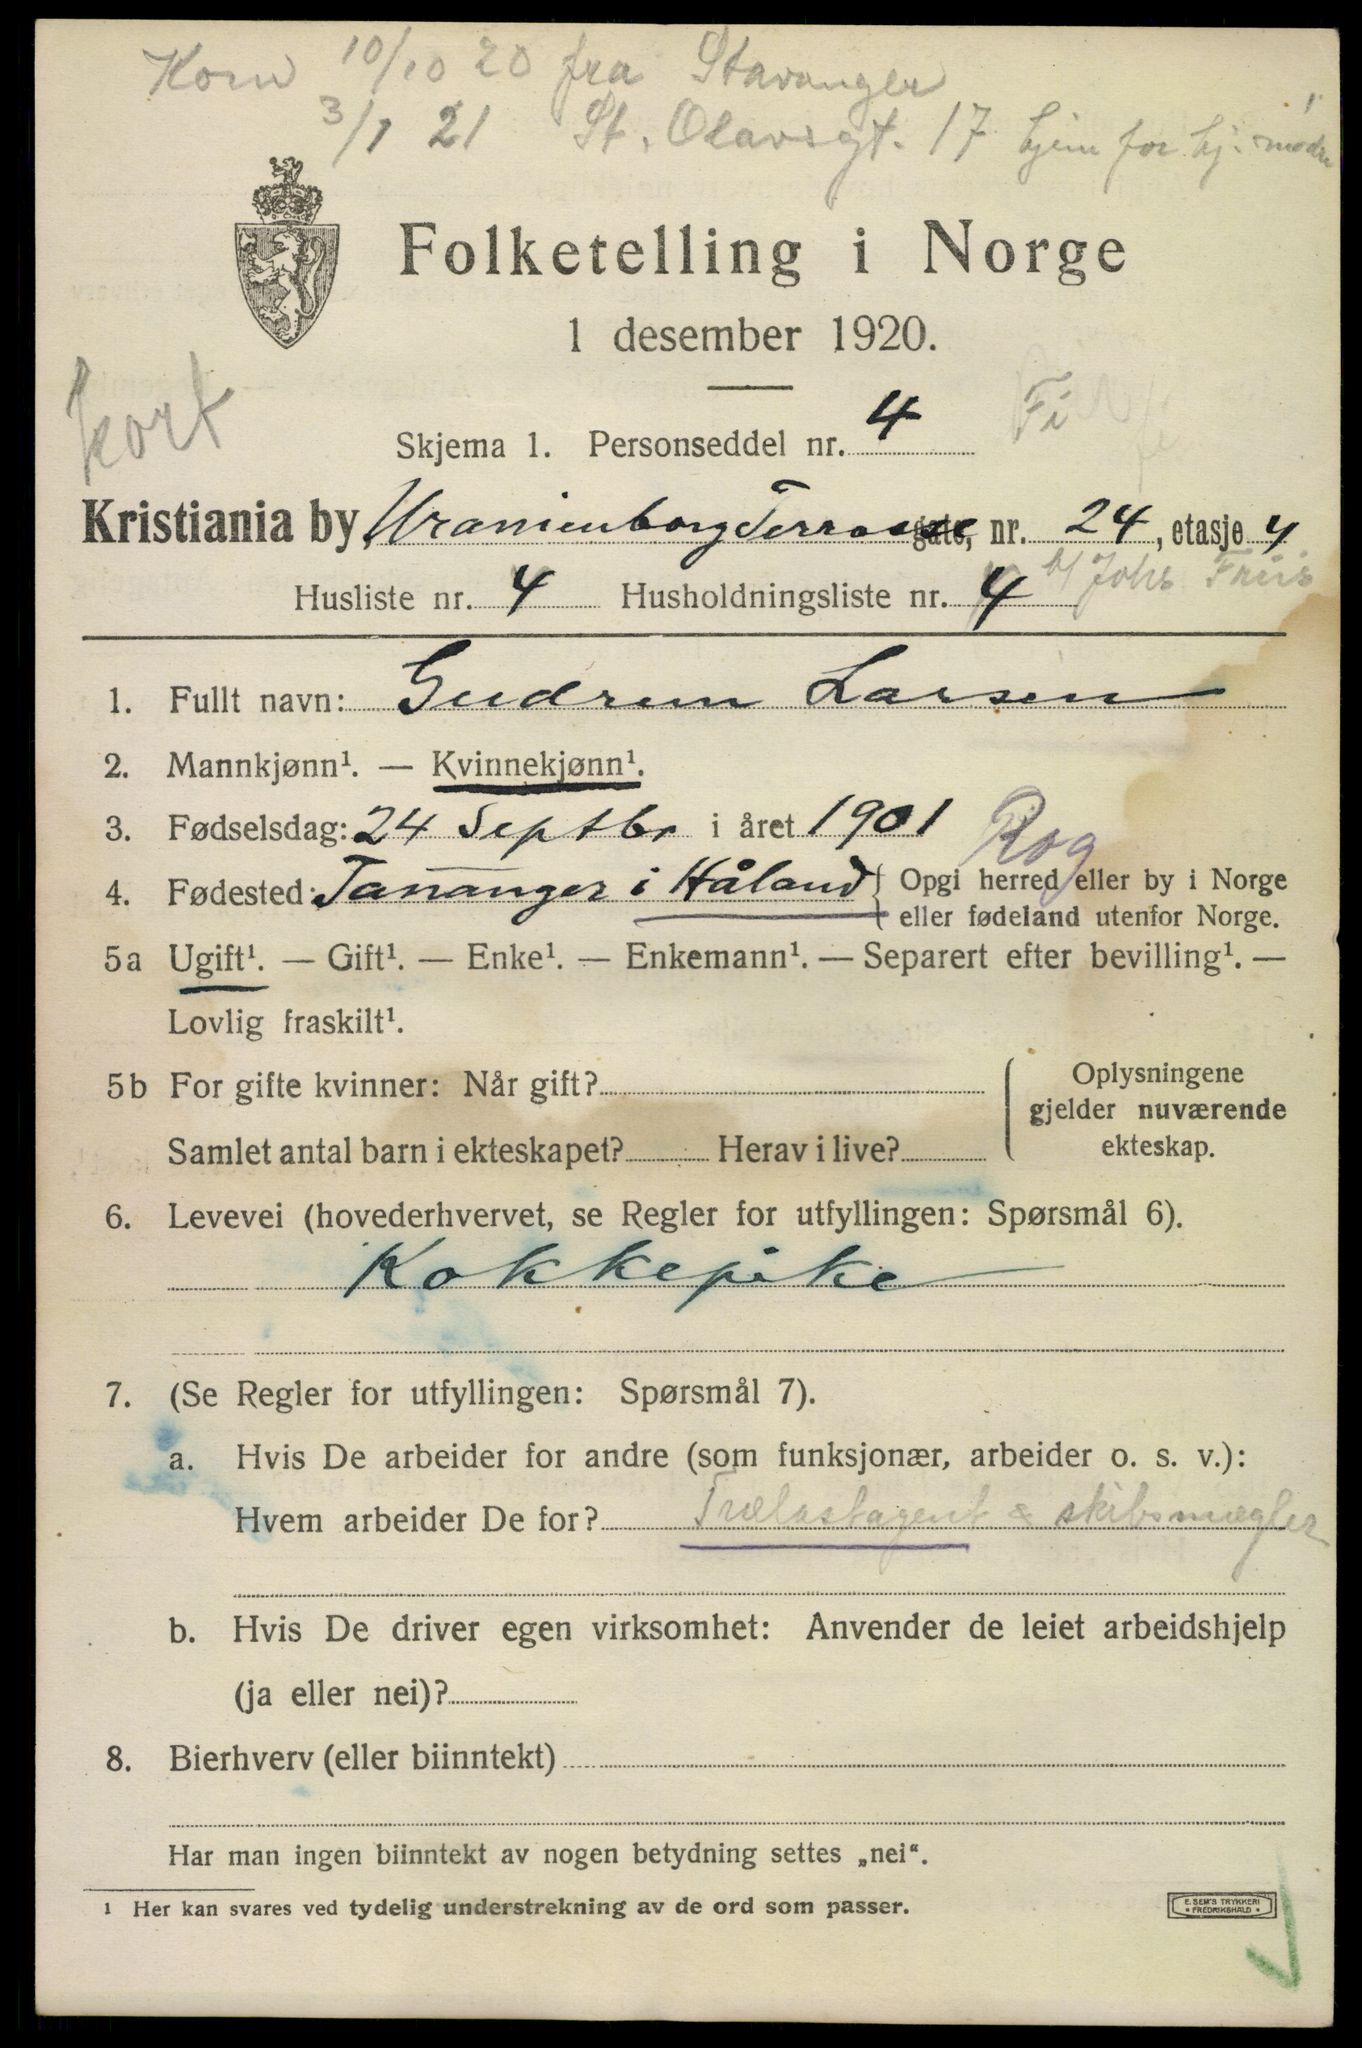 Kom 10/10 20 fra Stavanger
3/1 21 St. Olavsgt. 17 hjem for hj. mødre
Folketelling i Norge
1 desember 1920.
kort
Skjema 1. Personseddel nr. 4 Fi
Kristiania by, Uranienborg Terrasse gate, nr. 24, etasje 4
b/ Johs Friis
Husliste nr. 4 Husholdningsliste nr. 4
1. Fullt navn: Gudrun Larsen
2. Mannkjønn¹. — Kvinnekjønn¹.
3. Fødselsdag: 24 Septbr i året 1901 Rog
4. Fødested: Tananger i Håland { Opgi herred eller by i Norge
eller fødeland utenfor Norge.
5a Ugift¹. — Gift¹. — Enke¹. — Enkemann¹. — Separert efter bevilling¹. —
Lovlig fraskilt¹.
5b For gifte kvinner: Når gift?
Samlet antal barn i ekteskapet? Herav i live?
Oplysningene
gjelder nuværende
ekteskap.
6. Levevei (hovederhvervet, se Regler for utfyllingen: Spørsmål 6).
Kokkepike
7. (Se Regler for utfyllingen: Spørsmål 7).
a. Hvis De arbeider for andre (som funksjonær, arbeider o. s. v.):
Hvem arbeider De for? Trælastagent & skibsmægler
b. Hvis De driver egen virksomhet: Anvender de leiet arbeidshjelp
(ja eller nei)?
8. Bierhverv (eller biinntekt)
Har man ingen biinntekt av nogen betydning settes „nei“.
1 Her kan svares ved tydelig understrekning av de ord som passer.
E. SEM'S TRYKKERI
FREDRIKSHALD